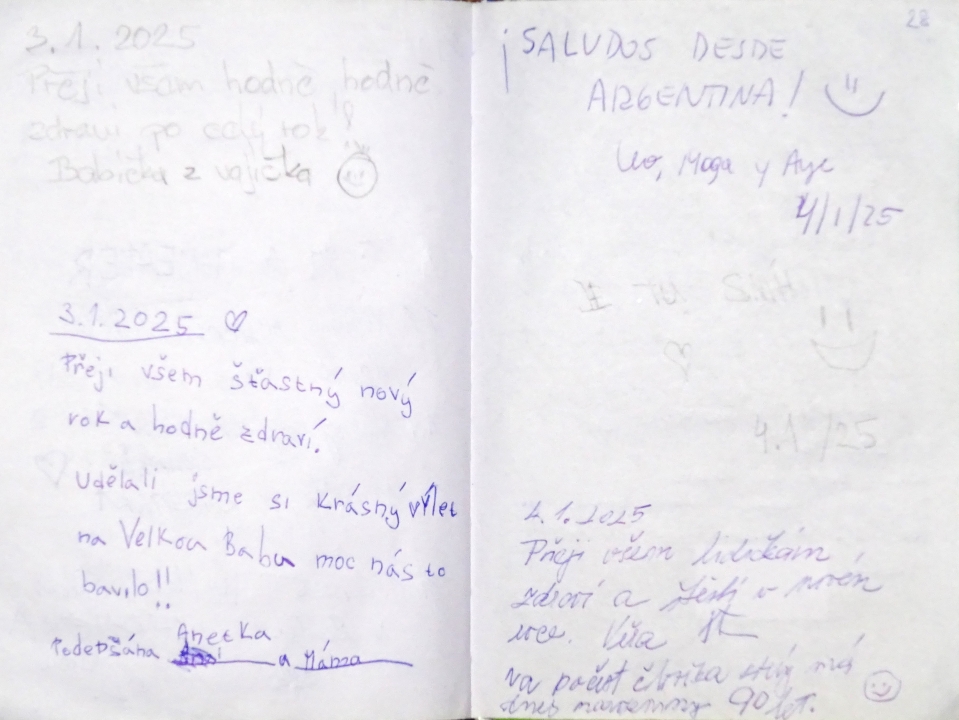 3.1.2025
Přeji všam hodně, hodně
zdraví po celý rok!
Babička z vajíčka
3.1.2025
Přeji všem šťastný nový
rok a hodně zdraví.
Udělali jsme si krásný výlet
na Velkou Babu moc nás to
bavilo!!
Anetka
a
28
¡SALUDOS DESDE
ARGENTINA!
y
4/1/25
4.1./25
4.1.2025
Přeji všem lidičkám
zdraví a štěstí v novém
roce. Věra
na počest
dnes narozeniny 90 let.